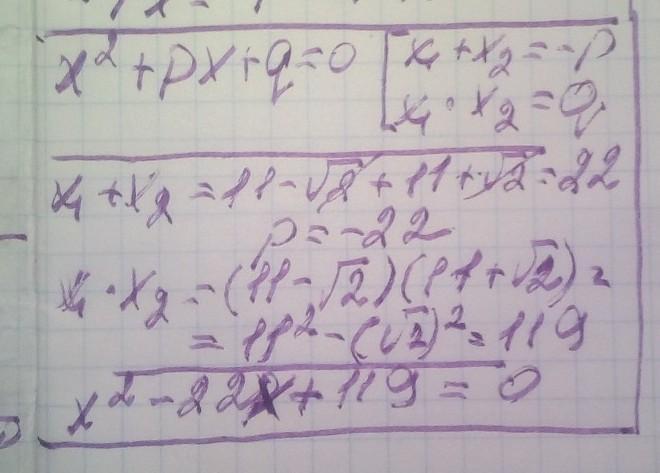 x² + px + q = 0
x₁ + x₂ = -p
x₁ · x₂ = q
x₁ + x₂ = 11 - √2 + 11 + √2 = 22
p = -22
x₁ · x₂ = (11 - √2)(11 + √2) =
= 11² - (√2)² = 119
x² - 22x + 119 = 0